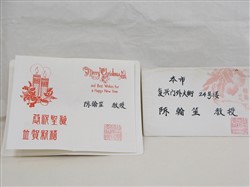 Merry Christmas
and Best Wishes for
a Happy New Year
陈翰笙 教授
恭祝圣诞
并贺新禧
本市
复兴门外大街 24号楼
陈翰笙 教授